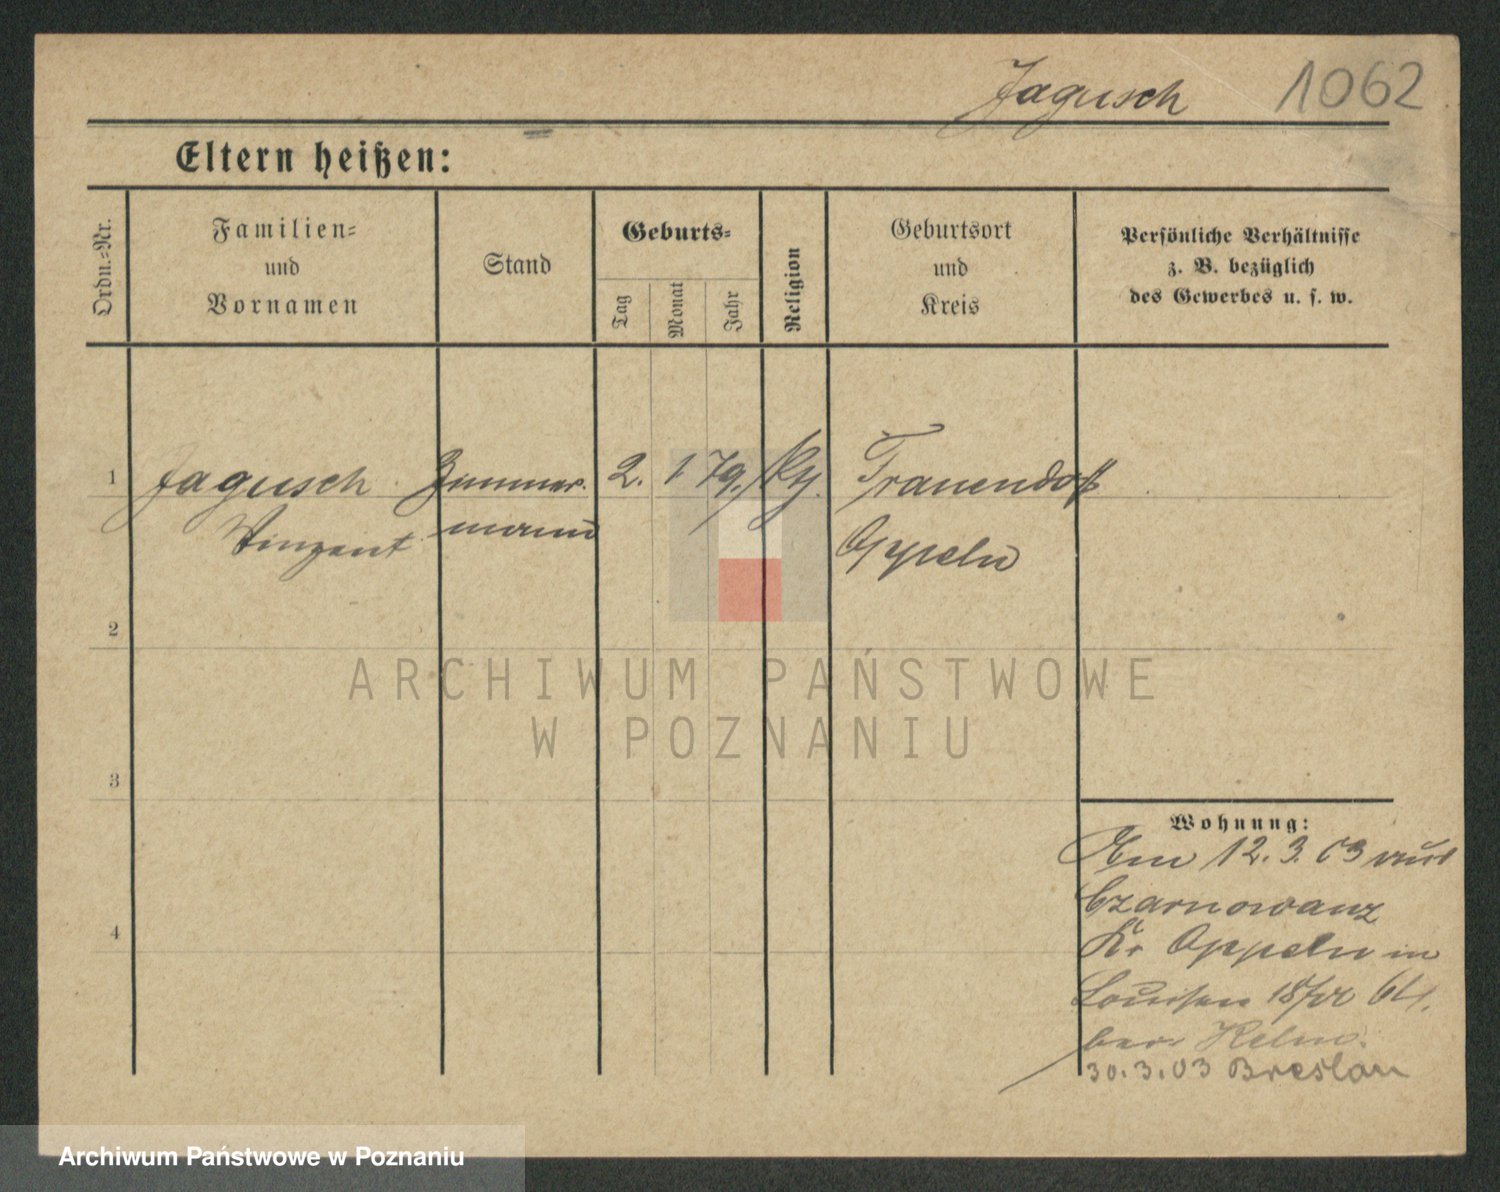 Jagusch 1062
Eltern heißen:
Ordn.-Nr.
Familien-
und
Vornamen
Stand
Geburts-
Tag
Monat
Jahr
Religion
Geburtsort
und
Kreis
Persönliche Verhältnisse
z. B. bezüglich
des Gewerbes u. s. w.
1 Jagusch Zimmer- 2. 1 79. Frauendorf
Vinzent mann Oppeln
2
3
4
Wohnung:
Am 12.3.03 aus
Czarnowanz
Kr Oppeln in
Louisen
bei Helm.
30.3.03 Breslau
ARCHIWUM PAŃSTWOWE
W POZNANIU
Archiwum Państwowe w Poznaniu